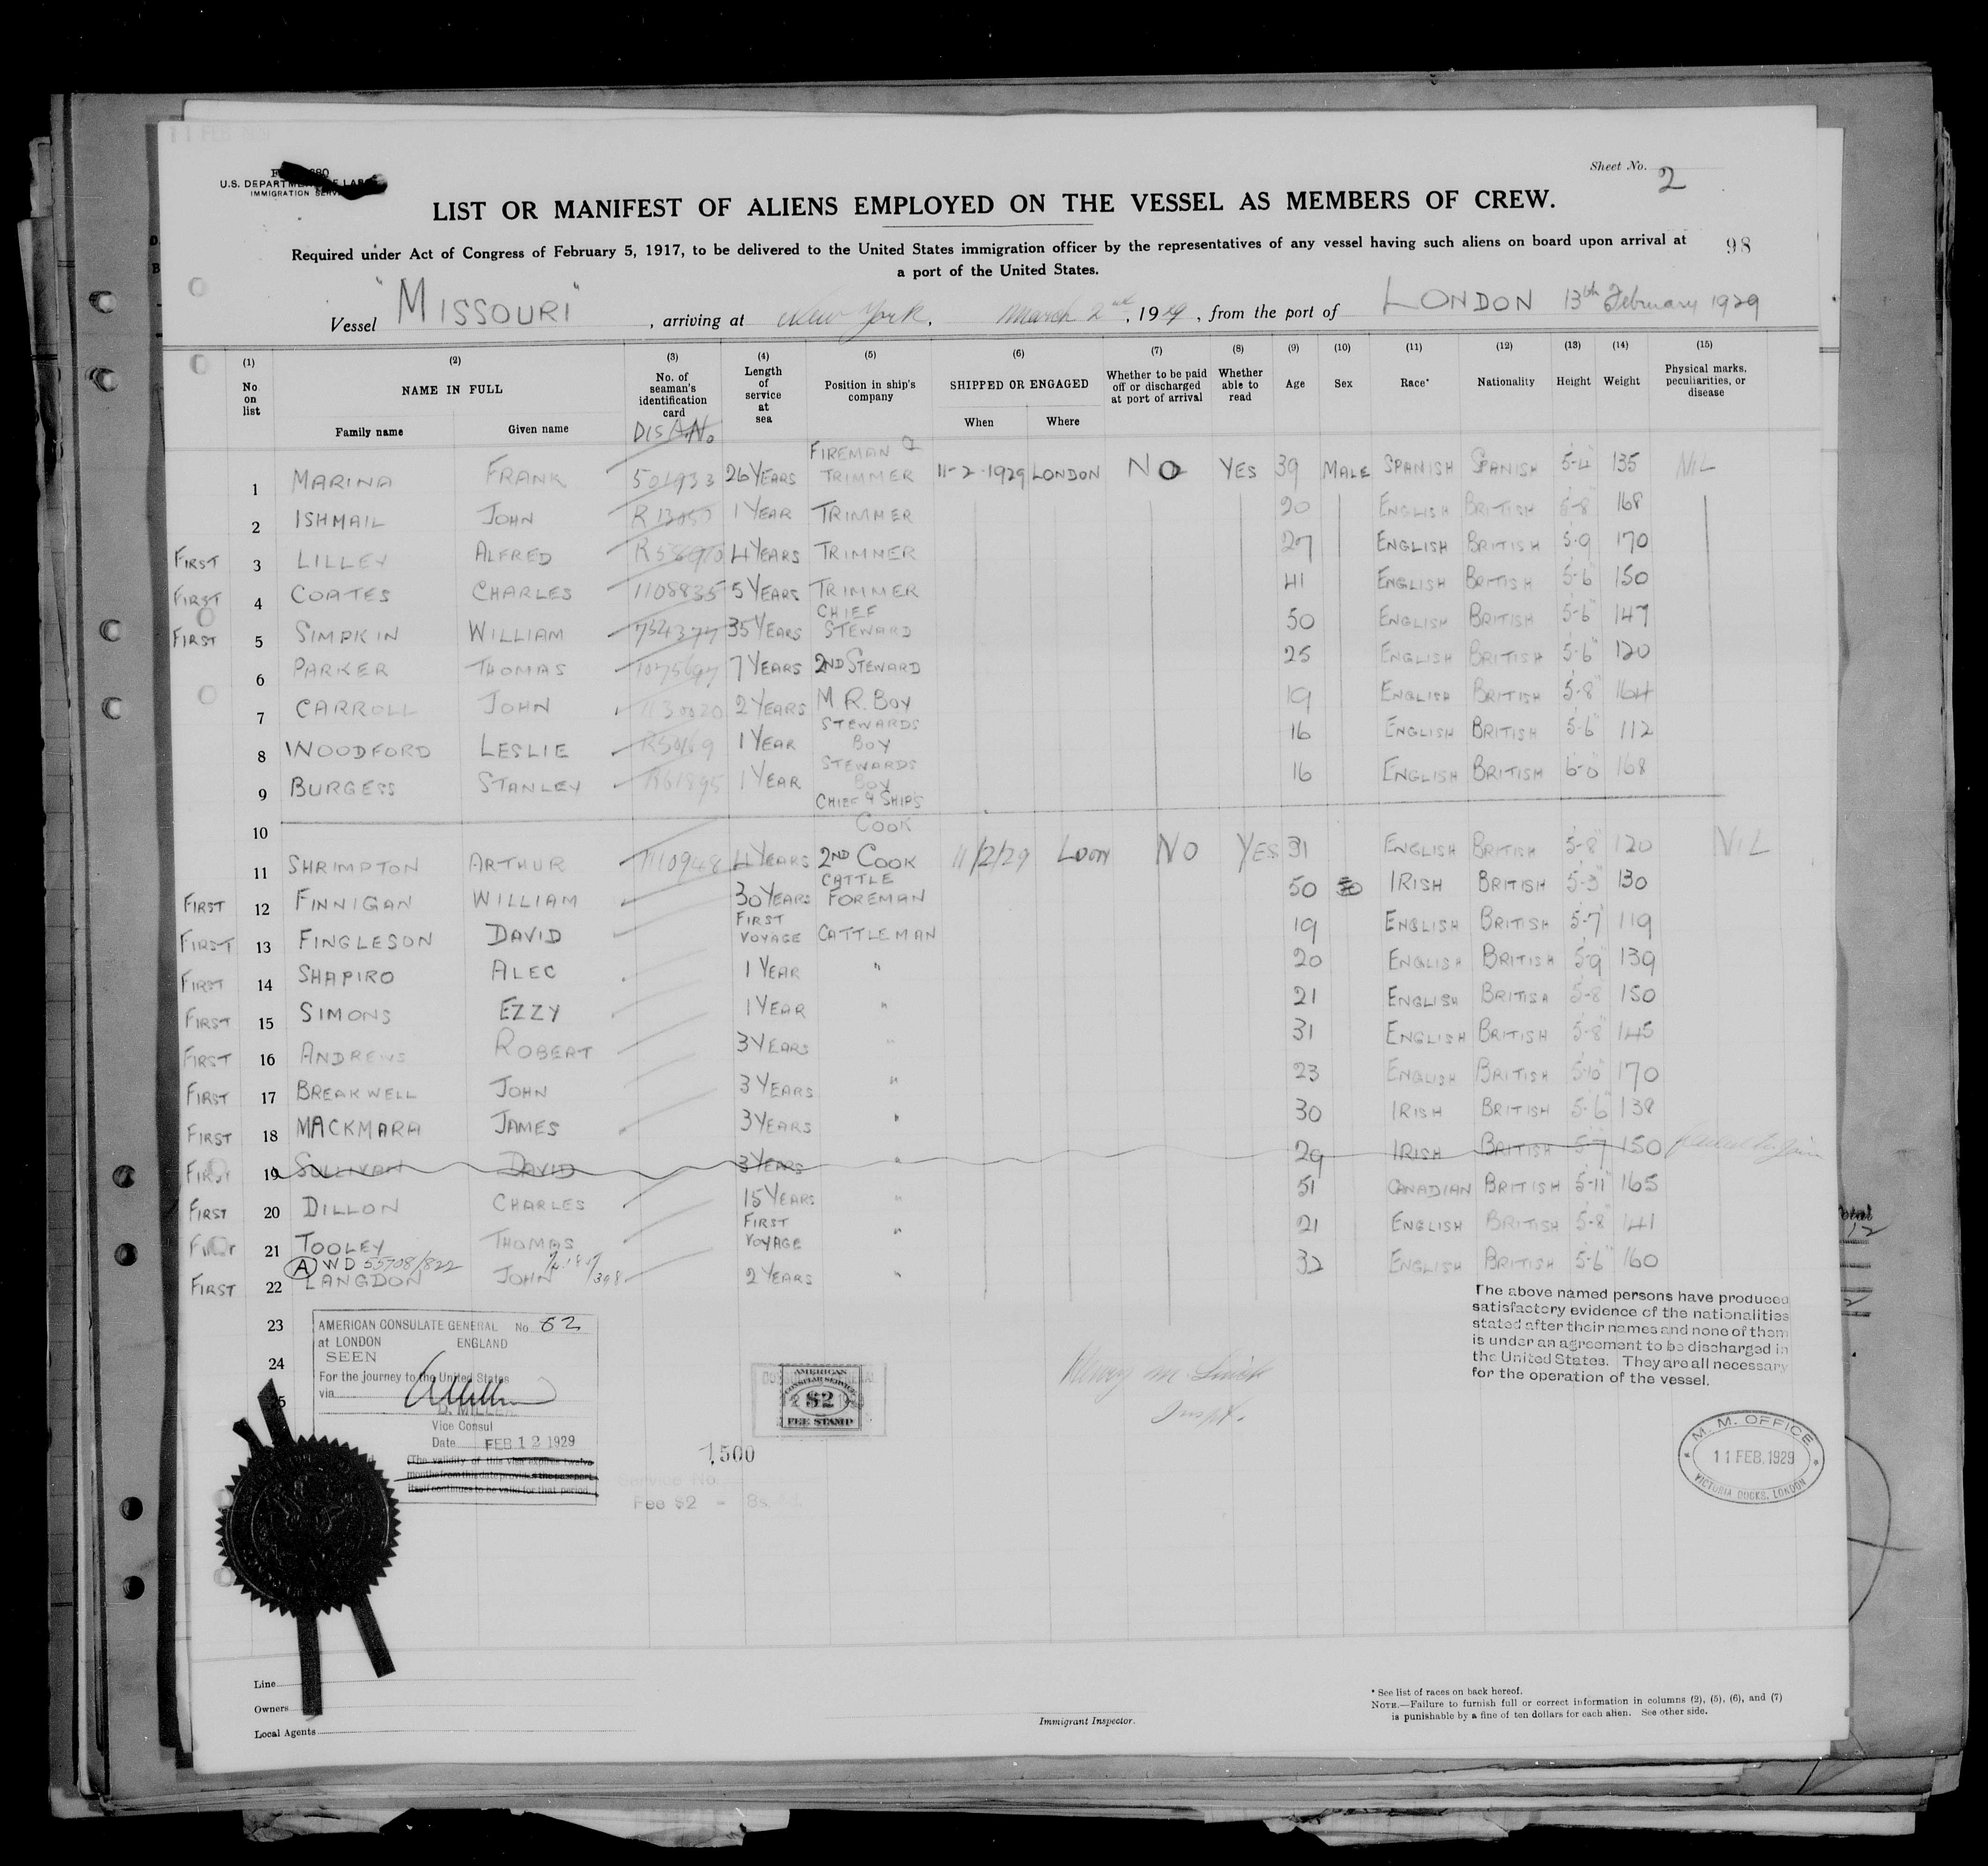 11 FEB 1929
Sheet No. 2
U.S. DEPARTMENT OF LABOR
IMMIGRATION SERVICE
LIST OR MANIFEST OF ALIENS EMPLOYED ON THE VESSEL AS MEMBERS OF CREW.
Required under Act of Congress of February 5, 1917, to be delivered to the United States immigration officer by the representatives of any vessel having such aliens on board upon arrival at
a port of the United States.
98
Vessel "MISSOURI", arriving at New York, March 2nd, 1929, from the port of LONDON 13th February 1929
(1) (2) (3) (4) (5) (6) (7) (8) (9) (10) (11) (12) (13) (14) (15)
No. on list NAME IN FULL Family name Given name No. of seaman's identification card DIS A. No. Length of service at sea Position in ship's company SHIPPED OR ENGAGED When Where Whether to be paid off or discharged at port of arrival Whether able to read Age Sex Race* Nationality Height Weight Physical marks, peculiarities, or disease
1 MARINA FRANK 501933 26 YEARS FIREMAN & TRIMMER 11-2-1929 LONDON NO YES 39 MALE SPANISH SPANISH 5-4" 135 NIL
2 ISHMAIL JOHN 1 YEAR TRIMMER 20 ENGLISH BRITISH 5-8" 168
FIRST 3 LILLEY ALFRED 4 YEARS TRIMMER 27 ENGLISH BRITISH 5-9 170
FIRST 4 COATES CHARLES 1108835 5 YEARS TRIMMER 41 ENGLISH BRITISH 5-6" 150
FIRST 5 SIMPKIN WILLIAM 734377 35 YEARS CHIEF STEWARD 50 ENGLISH BRITISH 5-6" 147
6 PARKER THOMAS 7 YEARS 2ND STEWARD 25 ENGLISH BRITISH 5-6" 120
7 CARROLL JOHN 2 YEARS M.R. BOY 19 ENGLISH BRITISH 5-8" 164
8 WOODFORD LESLIE 1 YEAR STEWARDS BOY 16 ENGLISH BRITISH 5-6" 112
9 BURGESS STANLEY R61895 1 YEAR STEWARDS BOY 16 ENGLISH BRITISH 6-0" 168
10 CHIEF & SHIPS COOK
11 SHRIMPTON ARTHUR 1110948 4 YEARS 2ND COOK 11/2/29 LDON NO YES 31 ENGLISH BRITISH 5-8" 120 NIL
FIRST 12 FINNIGAN WILLIAM 30 YEARS CATTLE FOREMAN 50 IRISH BRITISH 5-3" 130
FIRST 13 FINGLESON DAVID FIRST VOYAGE CATTLEMAN 19 ENGLISH BRITISH 5-7" 119
FIRST 14 SHAPIRO ALEC 1 YEAR " 20 ENGLISH BRITISH 5-9" 139
FIRST 15 SIMONS EZZY 1 YEAR " 21 ENGLISH BRITISH 5-8 150
FIRST 16 ANDREWS ROBERT 3 YEARS " 31 ENGLISH BRITISH 5-8" 145
FIRST 17 BREAKWELL JOHN 3 YEARS " 23 ENGLISH BRITISH 5-10" 170
FIRST 18 MACKMARA JAMES 3 YEARS " 30 IRISH BRITISH 5-6" 138
FIRST 19 SULLIVAN DAVID 3 YEARS " 29 IRISH BRITISH 5-7 150
FIRST 20 DILLON CHARLES 15 YEARS " 51 CANADIAN BRITISH 5-11" 165
FIRST 21 TOOLEY THOMAS FIRST VOYAGE " 21 ENGLISH BRITISH 5-8" 141
(A) WD 55708/822
FIRST 22 LANGDON JOHN 2 YEARS " 32 ENGLISH BRITISH 5-6" 160
23
24
25
AMERICAN CONSULATE GENERAL No. 62
at LONDON ENGLAND
SEEN
For the journey to the United States
via
D. MILLER
Vice Consul
Date FEB 12 1929
(The validity of this visa expires twelve
months from this date provided the passport
itself continues to be valid for that period.)
AMERICAN
CONSULAR SERVICE
$2
FEE STAMP
1,500
Service No.
Fee $2 = 8s.
Inspt.
The above named persons have produced
satisfactory evidence of the nationalities
stated after their names and none of them
is under an agreement to be discharged in
the United States. They are all necessary
for the operation of the vessel.
M. M. OFFICE
11 FEB. 1929
VICTORIA DOCKS, LONDON
Line
Owners
Local Agents
Immigrant Inspector.
* See list of races on back hereof.
NOTE.—Failure to furnish full or correct information in columns (2), (5), (6), and (7)
is punishable by a fine of ten dollars for each alien. See other side.